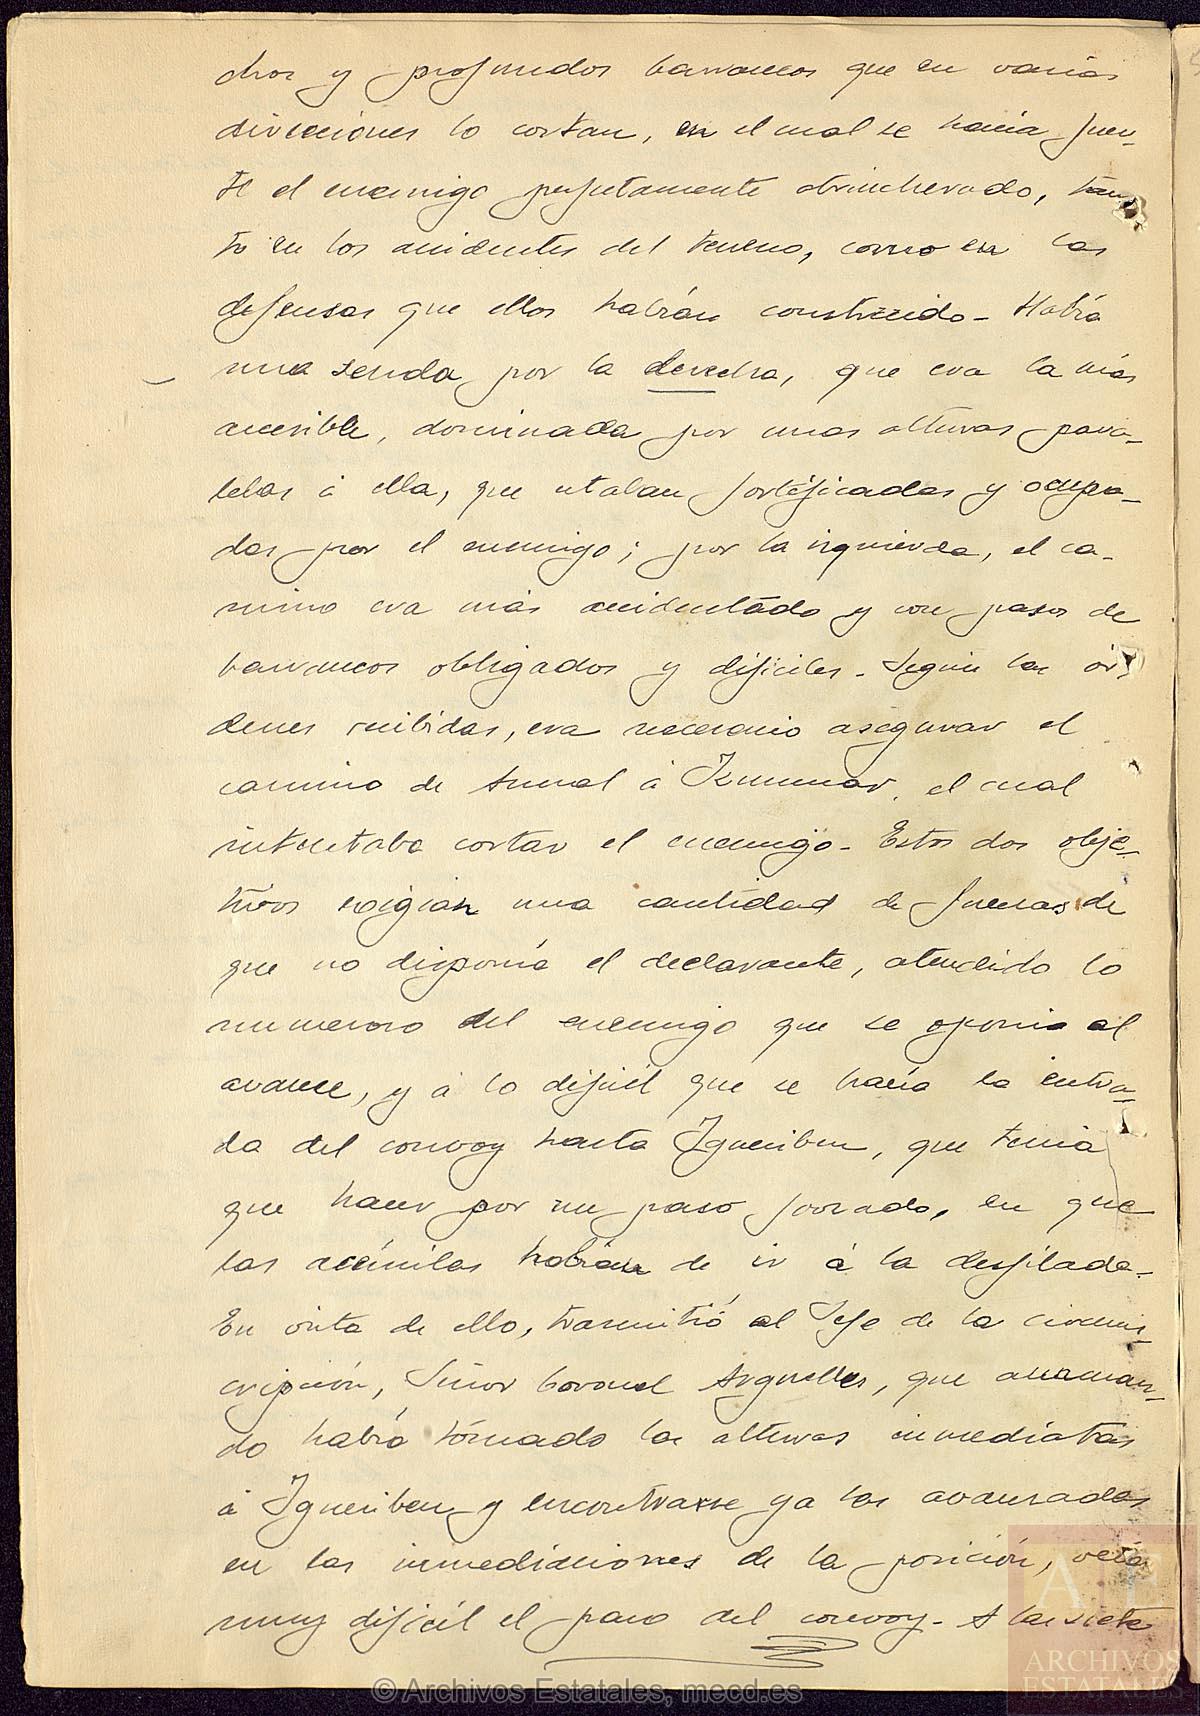 chos y profundos barrancos que en varias
direcciones lo cortan, en el cual se hacia fuer-
te el enemigo perfectamente atrincherado, tan-
to en los accidentes del terreno, como en las
defensas que ellos habían construido - Había
una senda, por la derecha, que era la más
accesible, dominada por unas alturas para-
lelas á ella, que estaban fortificadas y ocupa-
das por el enemigo; por la izquierda, el ca-
mino era más accidentado y con pasos de
barrancos obligados y dificiles - Según las ór-
denes recibidas, era necesario asegurar el
camino de Annual á Izummar, el cual
intentaba cortar el enemigo - Estos dos obje-
tivos exigian una cantidad de fuerzas de
que no disponía el declarante, atendido lo
numeroso del enemigo que se oponia al
avance, y á lo dificil que se hacía la entra-
da del convoy hasta Igueriben, que tenia
que hacer por un paso forzado, en que
las acémilas habían de ir á la desfilada -
En vista de ello, trasmitió al Jefe de la circuns-
cripción, Señor Coronel Arguelles, que
había tomado las alturas inmediatas
á Igueriben y encontrarse ya las avanzadas
en las inmediaciones de la posición, veía
muy dificil el paso del convoy - A las siete
© Archivos Estatales, mecd.es
AE
ARCHIVOS
ESTATALES